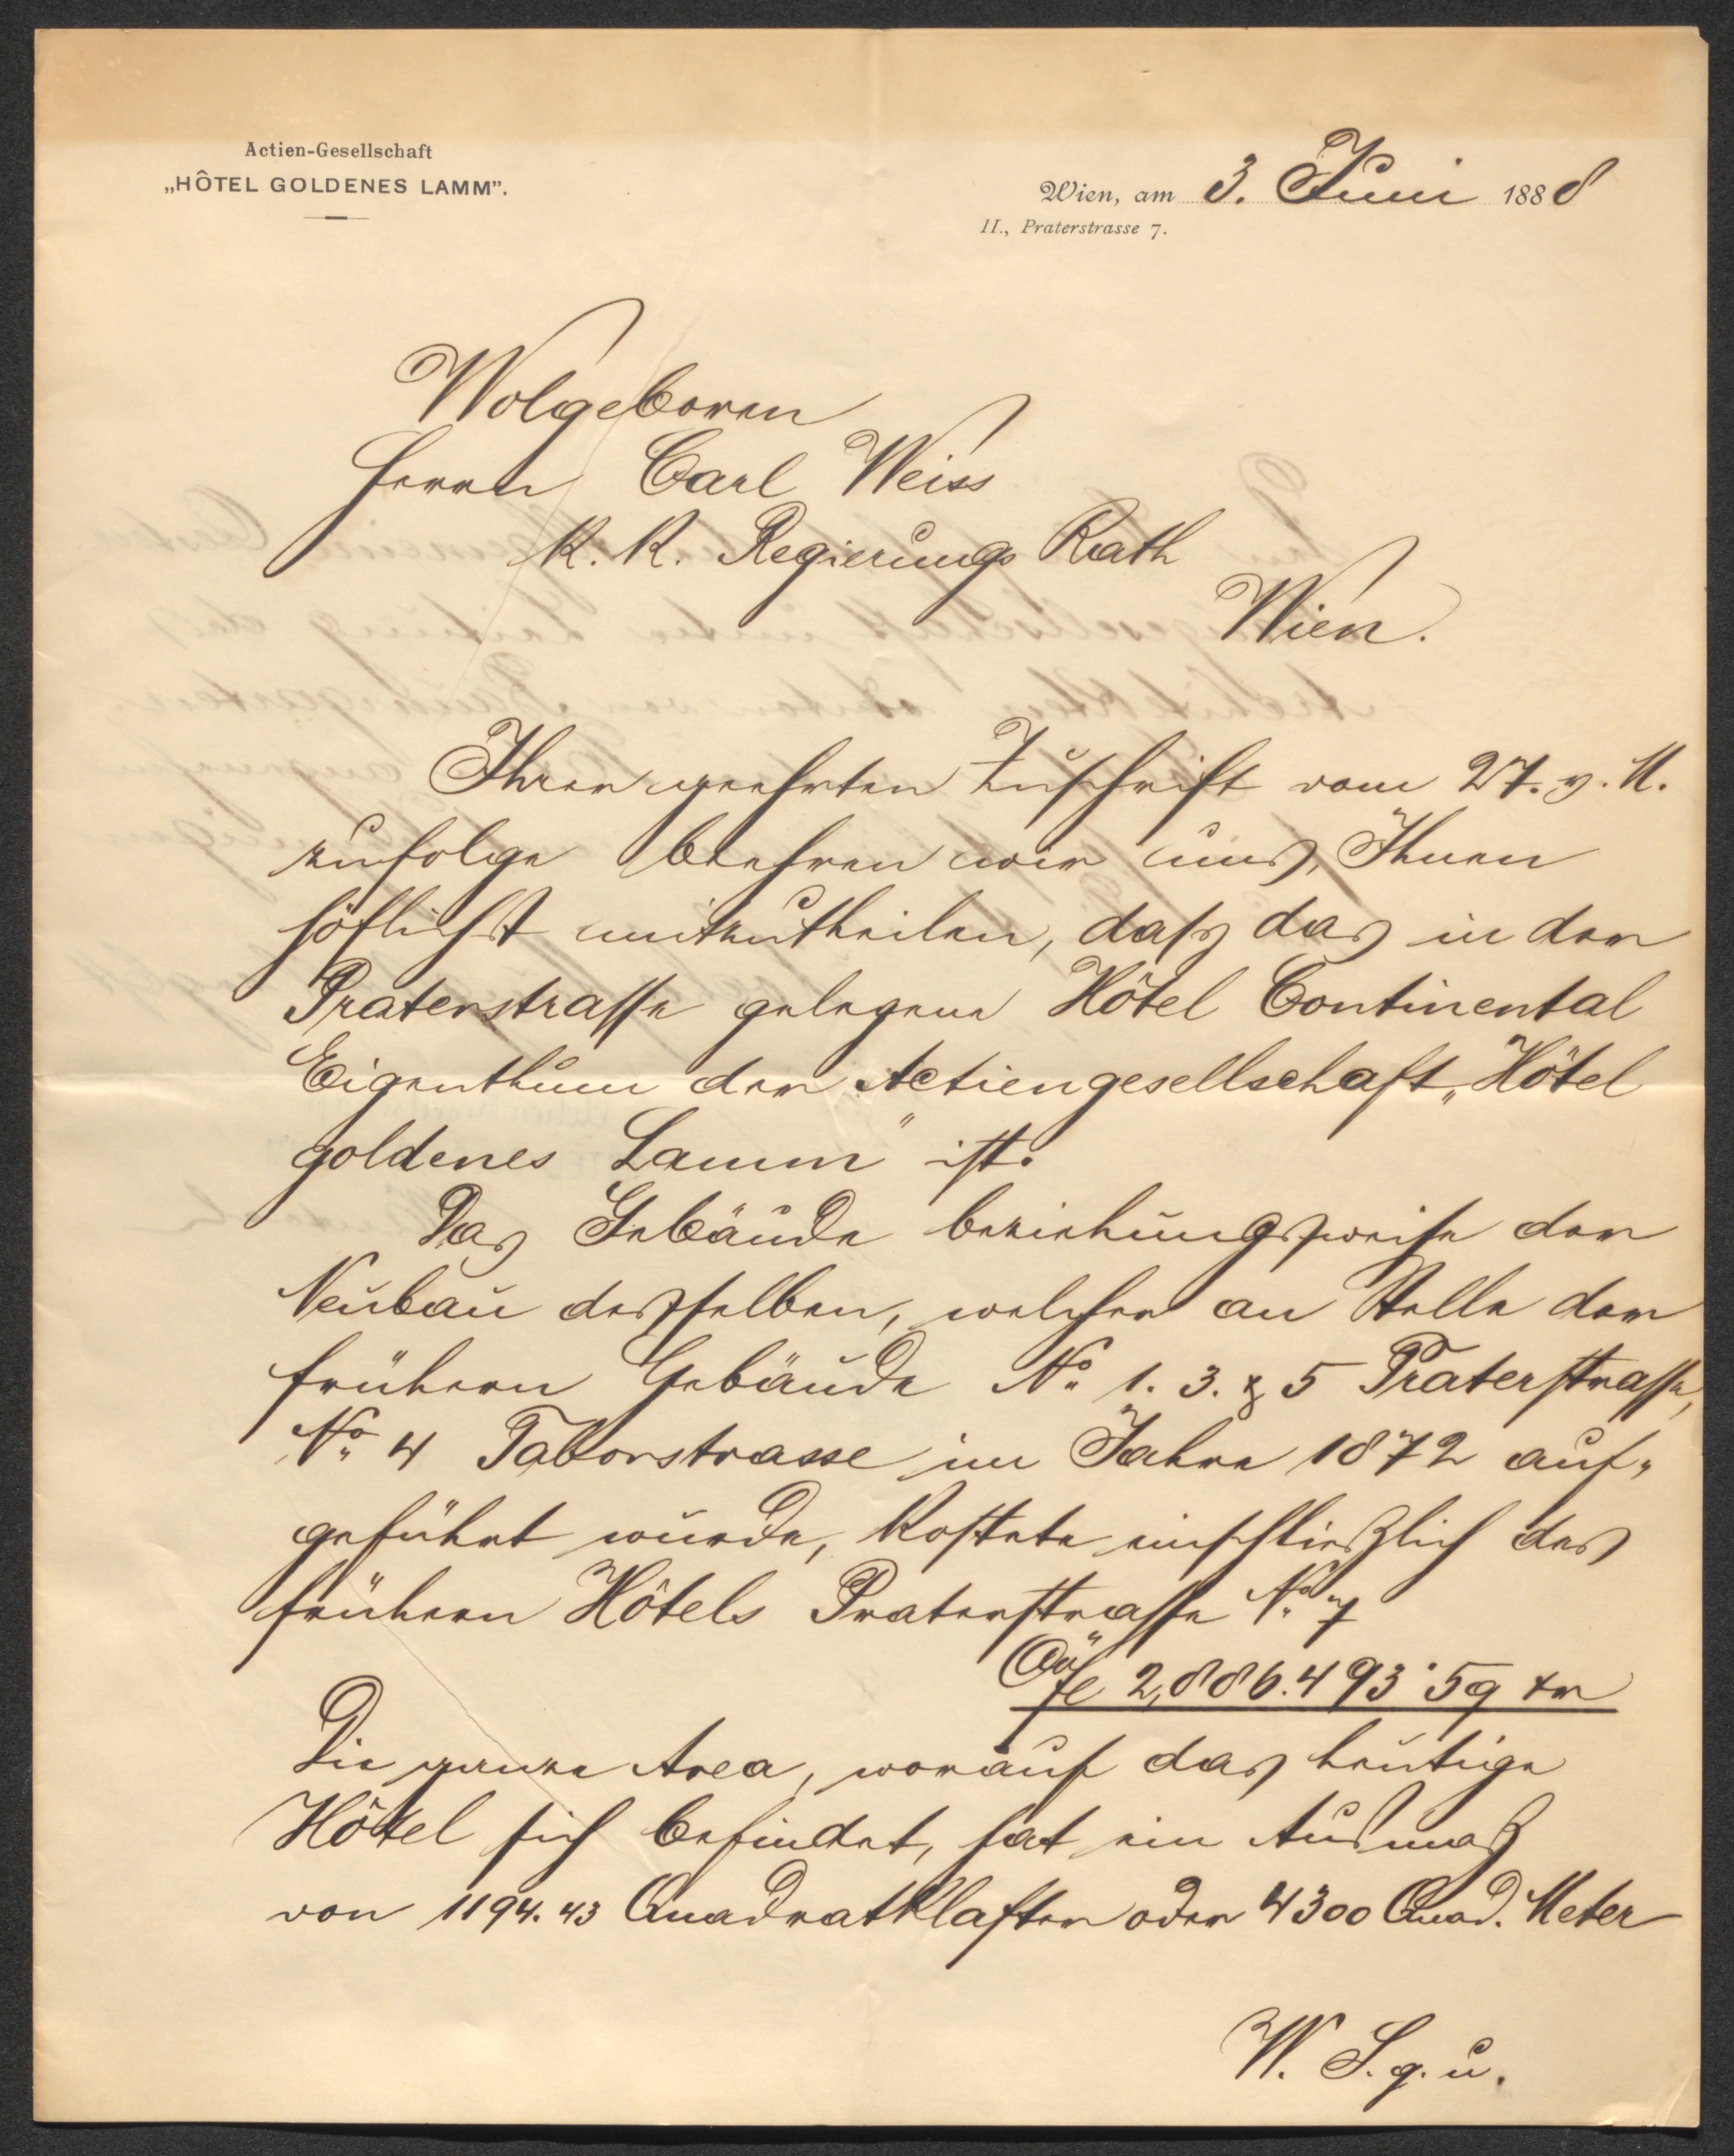 Actien-Gesellschaft
„HÔTEL GOLDENES LAMM”.
Wien, am 3. Juni 1888
II., Praterstrasse 7.
Wolgeboren
Herrn Carl Weiss
K. K. Regierungs Rath
Wien.
Ihrer geehrten Zuschrift vom 27. v. M.
zufolge beehren wir uns, Ihnen
höflichst mitzutheilen, daß das in der
Praterstrasse gelegene Hôtel Continental
Eigenthum der Actiengesellschaft „Hôtel
goldenes Lamm" ist.
Das Gebäude beziehungsweise der
Neubau desselben, welcher an Stelle der
frühern Gebäude No. 1. 3. & 5 Praterstrasse,
No. 4 Taborstrasse im Jahre 1872 auf-
geführt wurde, kostete einschließlich des
frühern Hôtels Praterstrasse No. 7
fl 2,886.493·59 kr
Die ganze Area, worauf das heutige
Hôtel sich befindet, hat ein Ausmaß
von 1194.43 Quadratklafter oder 4300 Quad. Meter
W. S. g. u.